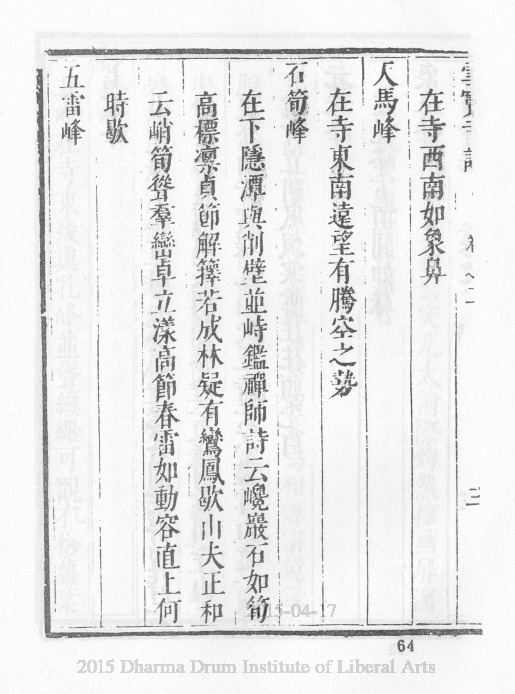 在寺西南如象鼻
天馬峰
在寺東南遠望有騰空之勢
石筍峰
在下隱潭與削壁並峙鑑禪師詩云巉巖石如筍
高標凛貞節解籜若成林疑有鸞鳳歇山夫正和
云峭筍聳羣巒卓立漾高節春雷如動容直上何
時歇
五雷峰
64
2015-04-17
2015 Dharma Drum Institute of Liberal Arts